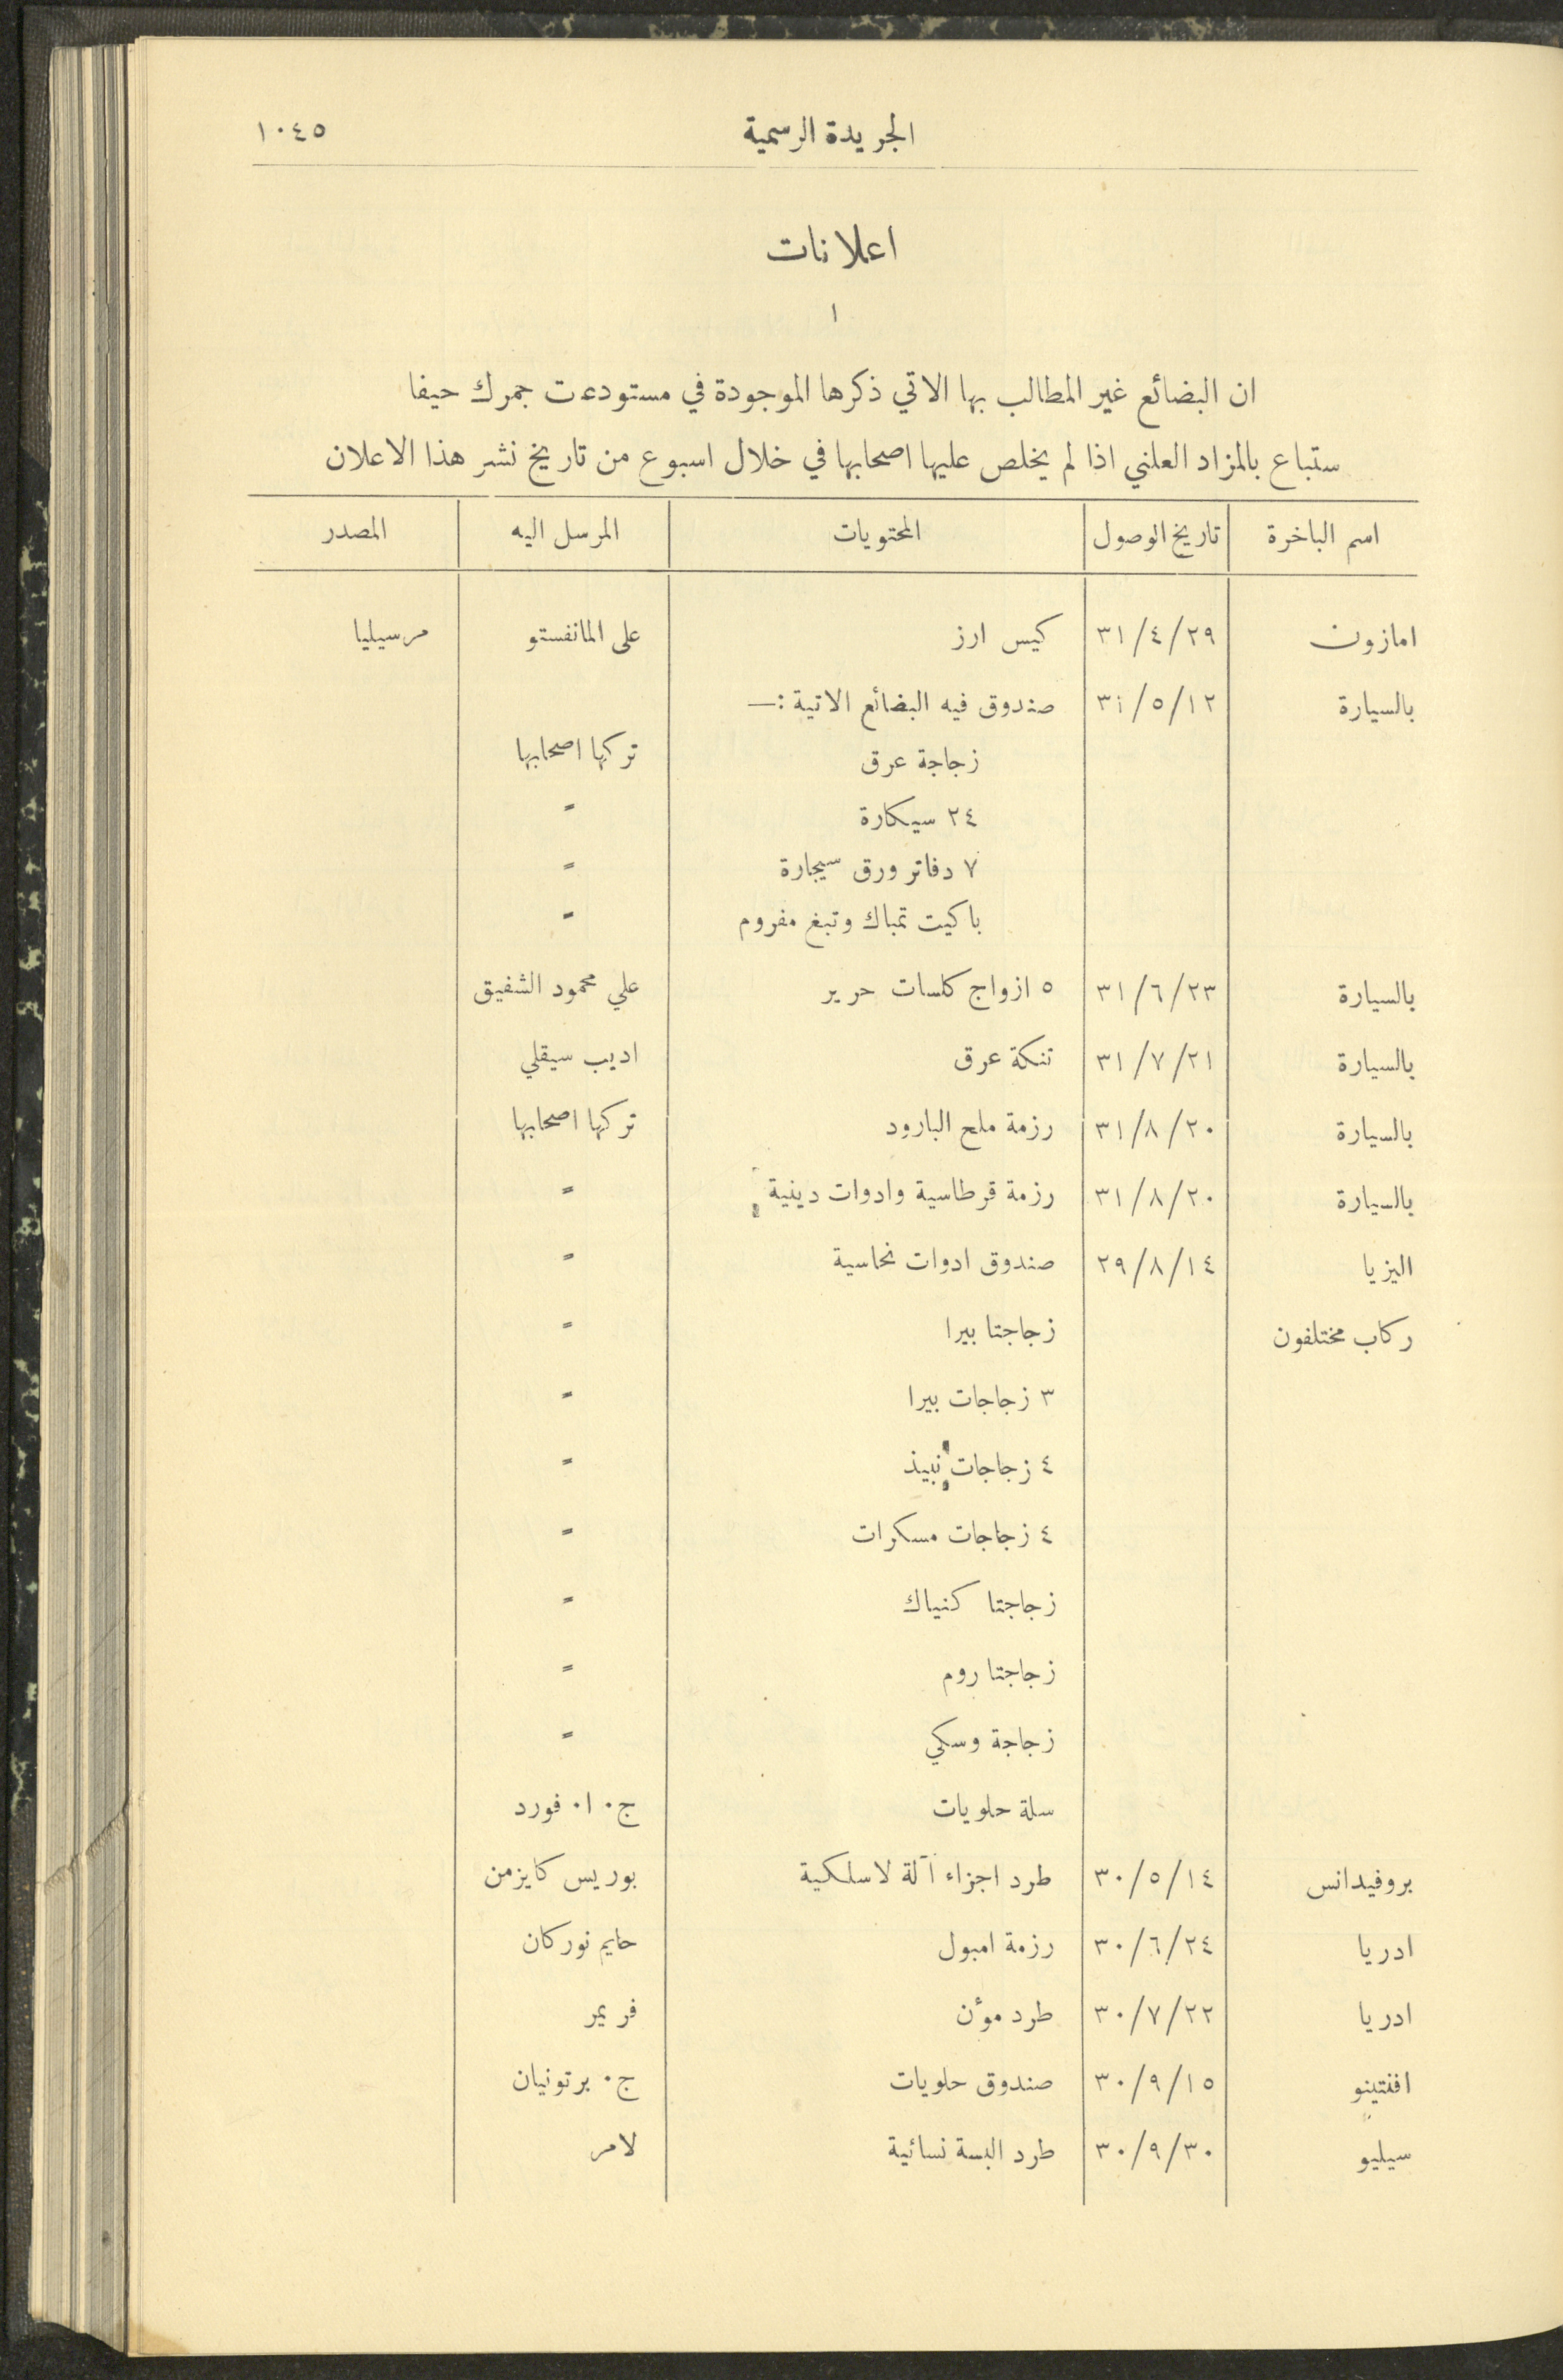 الجريدة الرسمية ١٠٤٥
اعلانات
١
ان البضائع غير المطالب بها الاتي ذكرها الموجودة في مستودعت جمرك حيفا
ستباع بالمزاد العلني اذا لم يخلص عليها اصحابها في خلال اسبوع من تاريخ نشر هذا الاعلان
اسم الباخرة تاريخ الوصول المحتويات المرسل اليه المصدر
امازون ٢٩/٤/٣١ كيس ارز على المانفستو مرسيليا
بالسيارة ١٢/٥/٣١ صندوق فيه البضائع الاتية :—
زجاجة عرق تركها اصحابها
٢٤ سيكارة "
٧ دفاتر ورق سيجارة "
باكيت تمباك وتبغ مفروم "
بالسيارة ٢٣/٦/٣١ ٥ ازواج كلسات حرير علي محمود الشفيق
بالسيارة ٢١/٧/٣١ تنكة عرق اديب سيقلي
بالسيارة ٢٠/٨/٣١ رزمة ملح البارود تركها اصحابها
بالسيارة ٢٠/٨/٣١ رزمة قرطاسية وادوات دينية "
اليزيا ١٤/٨/٢٩ صندوق ادوات نحاسية "
ركاب مختلفون زجاجتا بيرا "
٣ زجاجات بيرا "
٤ زجاجات نبيذ "
٤ زجاجات مسكرات "
زجاجتا كنياك "
زجاجتا روم "
زجاجة وسكي "
سلة حلويات ج٠ ا٠ فورد
بروفيدانس ١٤/٥/٣٠ طرد اجزاء آلة لاسلكية بوريس كايزمن
ادريا ٢٤/٦/٣٠ رزمة امبول حايم نوركان
ادريا ٢٢/٧/٣٠ طرد مؤن فريمر
افنتينو ١٥/٩/٣٠ صندوق حلويات ج٠ برتونيان
سيليو ٣٠/٩/٣٠ طرد البسة نسائية لامر